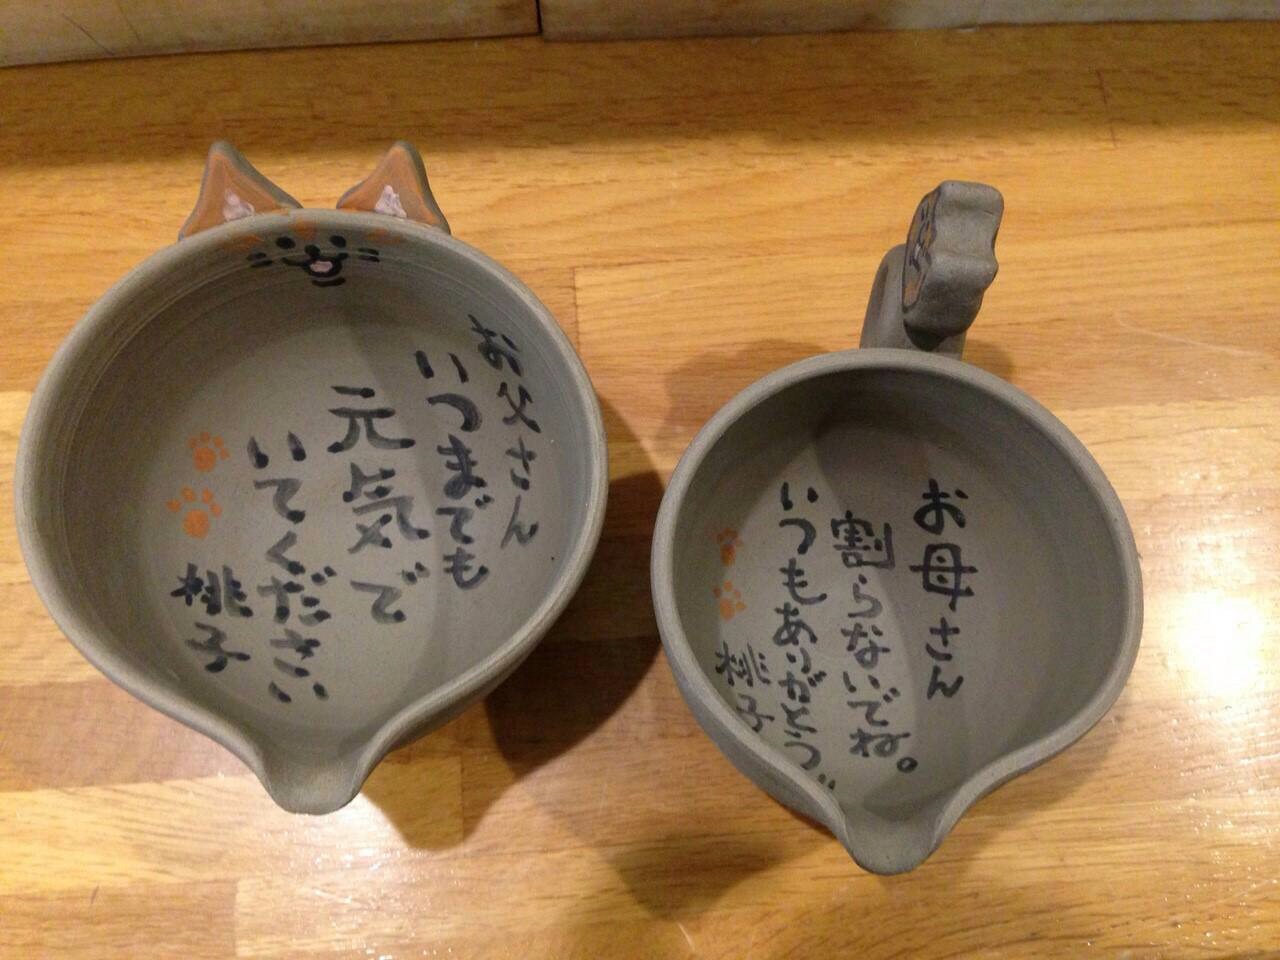 お父さん
いつまでも
元気で
いてください
桃子
お母さん
割らないでね。
いつもありがとう。
桃子